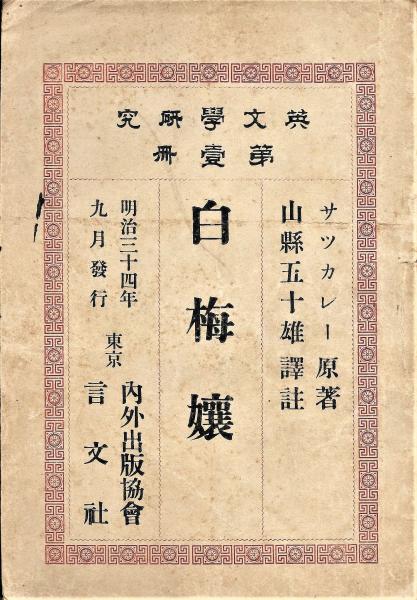 英文學研究
第壹冊
サツカレー原著
山縣五十雄譯註
白梅孃
明治三十四年
九月發行
東京
內外出版協會
言文社